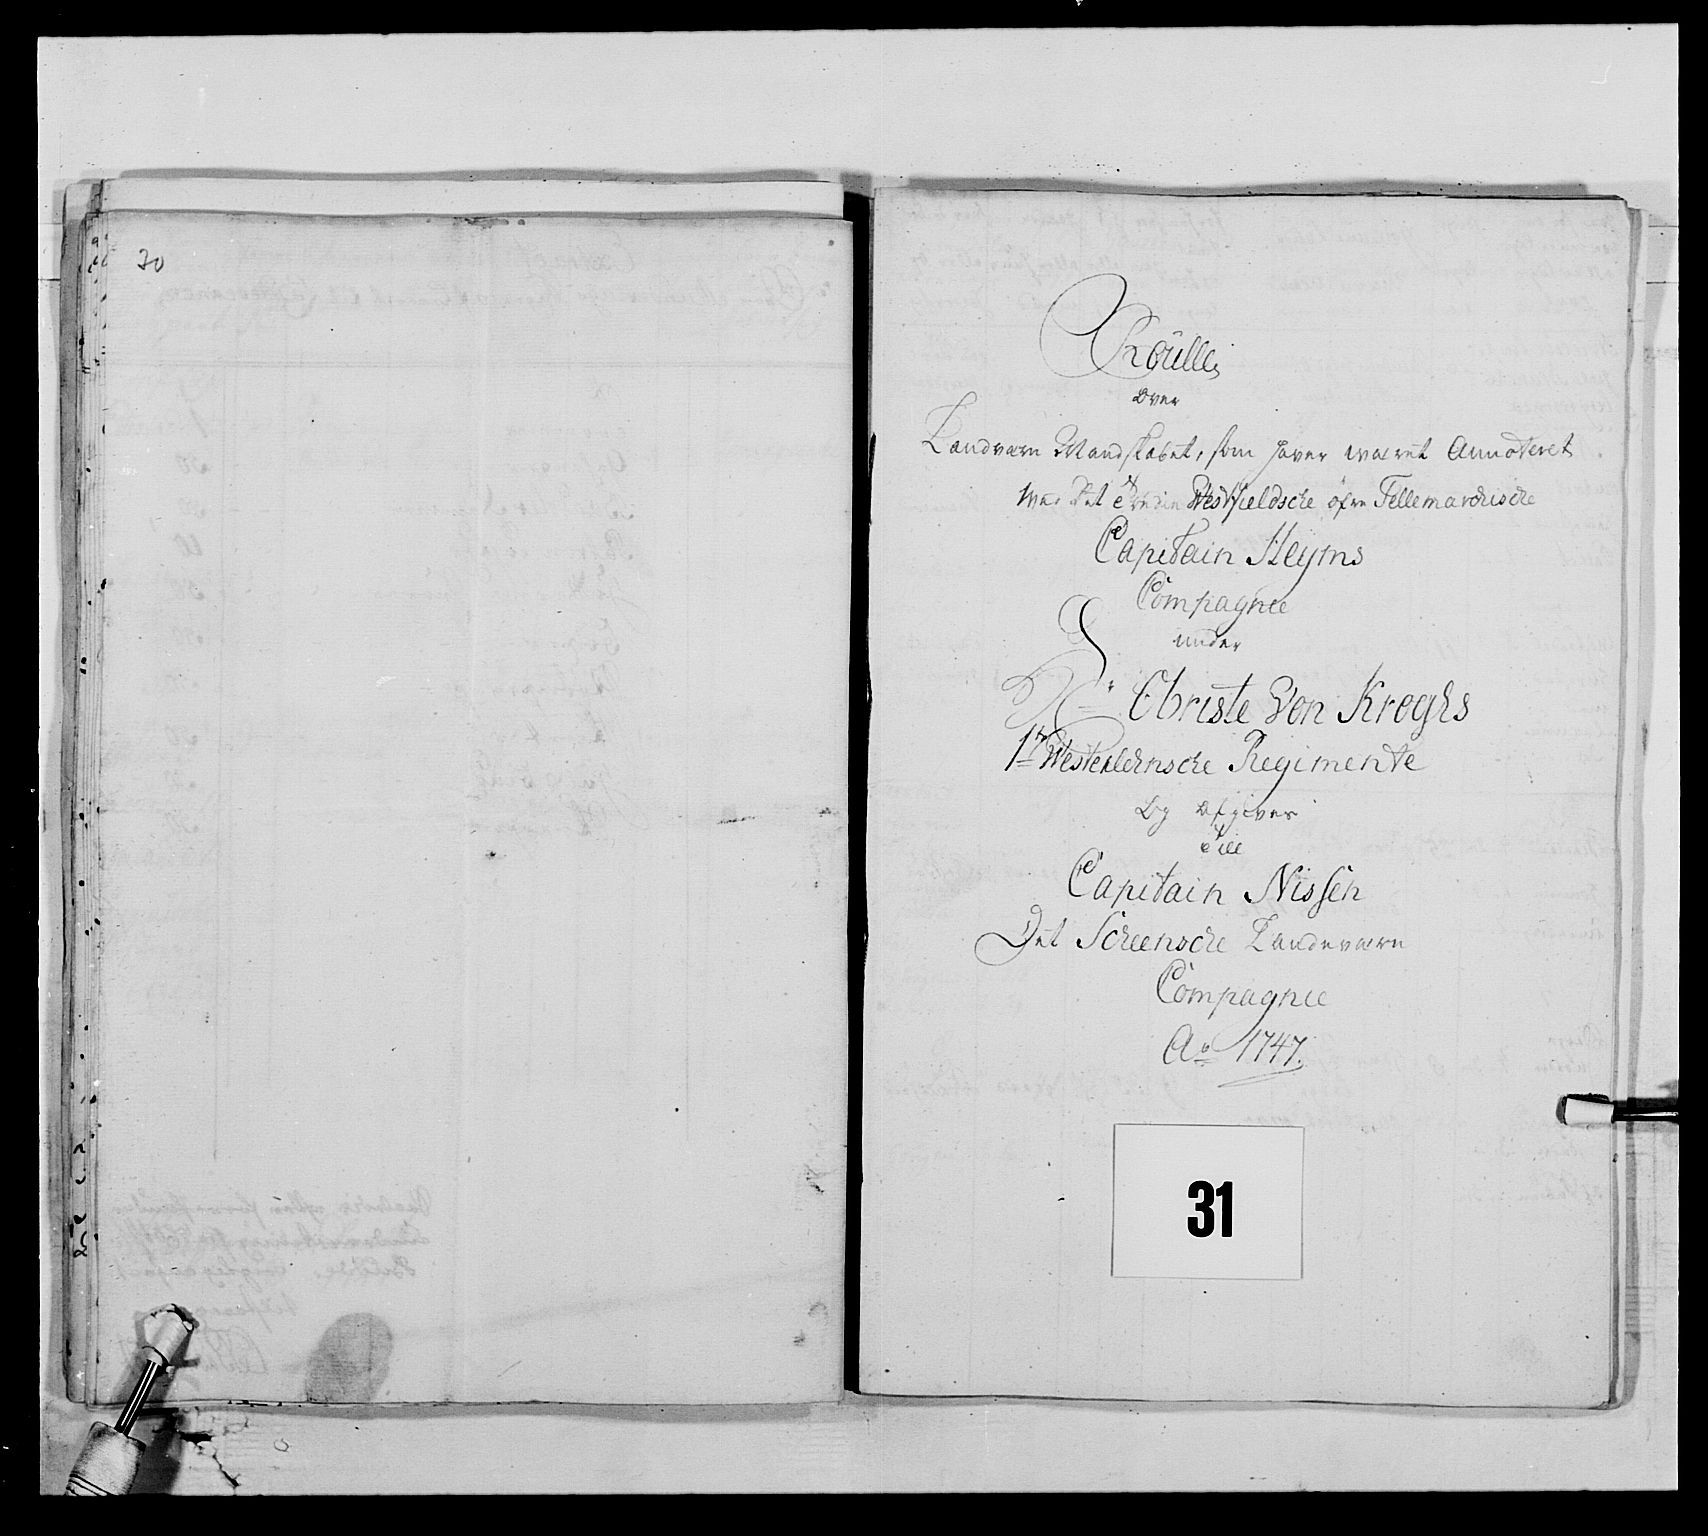 30
Roülle
over
Landværn Mandskabet, som haver wæret Annoteret
wed det Westfieldsche öfre Tellemarchische
Capitain Heyms
Compagnie
under
Hr Christe Von Kroghs
1te Westerlehnsche Regimente
og afgives
till
Capitain Nissen
Det Scheensche Landeværn
Compagnie
Ao 1747.
31